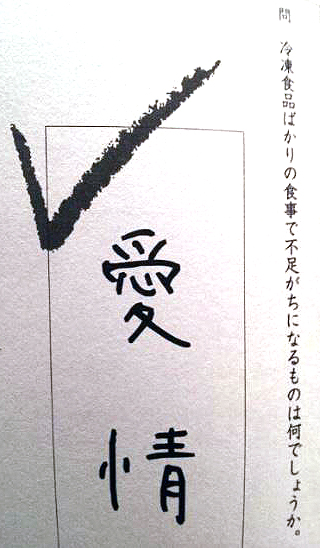 問 冷凍食品ばかりの食事で不足がちになるものは何でしょうか。
愛情